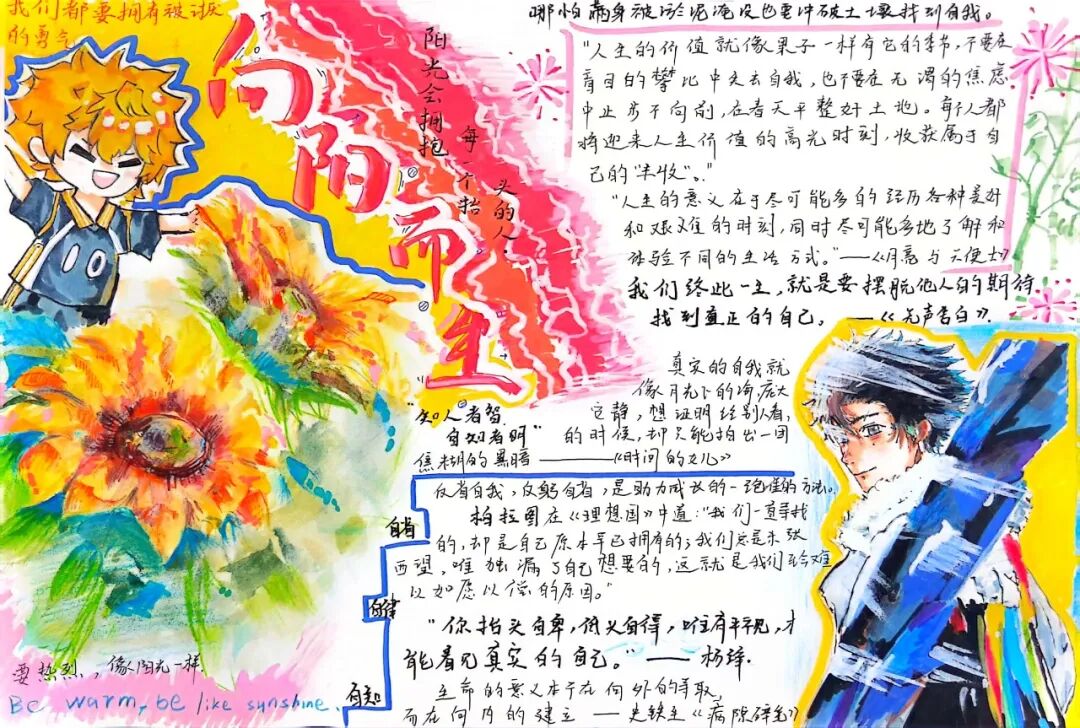 我们都要拥有被讨厌
的勇气
向阳而生
阳光会拥抱
每一个抬
头的人.
10
哪怕满身被淤泥淹没也要冲破土壤找到自我。
“人生的价值就像果子一样有它的季节,不要在
盲目的攀比中失去自我,也不要在无谓的焦虑
中止步不向前,在春天平整好土地。每个人都
将迎来人生价值的高光时刻,收获属于自
己的“丰收”。”
“人生的意义在于尽可能多的经历各种美好
和艰难的时刻,同时尽可能多地了解和
体验不同的生活方式。”——《月亮与六便士》
我们终此一生,就是要摆脱他人的期待,
找到真正的自己。——《无声告白》
真实的自我就
像月光下的海,庞大
宁静,想证明给别人看,
的时候,却只能拍出一团
焦糊的黑暗——《时间的女儿》
“知人者智
自知者明”
反省自我,反躬自省,是助力成长的一
柏拉图在《理想国》中道:“我们一直寻找
的,却是自己原本早已拥有的;我们总是东张
西望,唯独漏了自己想要的,这就是我们至今难
以如愿以偿的原因。”
自省
自律
自知
“你抬头自卑,低头自得,唯有平视,才
能看见真实的自己。”——杨绛.
生命的意义本不在向外的寻取,
而在向内的建立——史铁生《病隙碎笔》
要热烈,像阳光一样.
Be warm, be like sunshine.